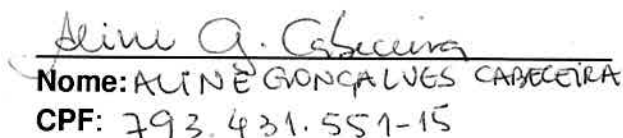 Aline G. Cabeceira
Nome: ALINE GONÇALVES CABECEIRA
CPF: 793.431.551-15